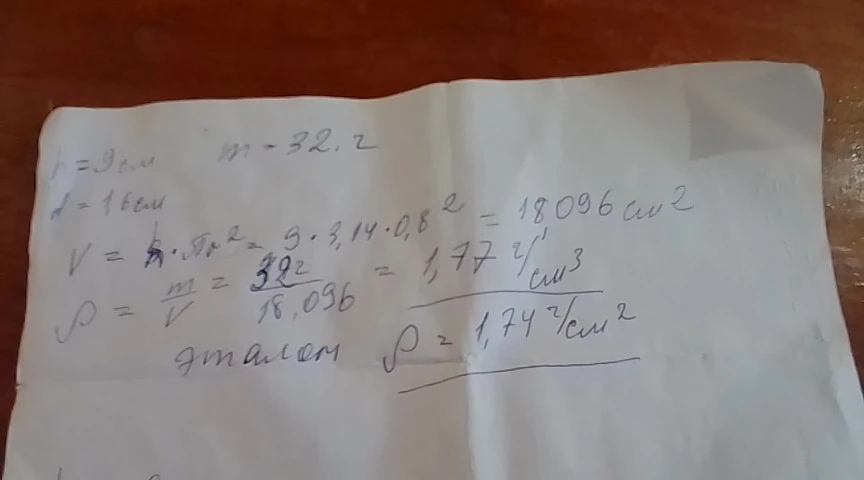 h = 9 см m - 32. г
d = 1,6 см
V = h · πr² = 9 · 3,14 · 0,8² = 18,096 см²
ρ = m/V = 32г/18,096 = 1,77 г/см³
эталон ρ = 1,74 г/см²